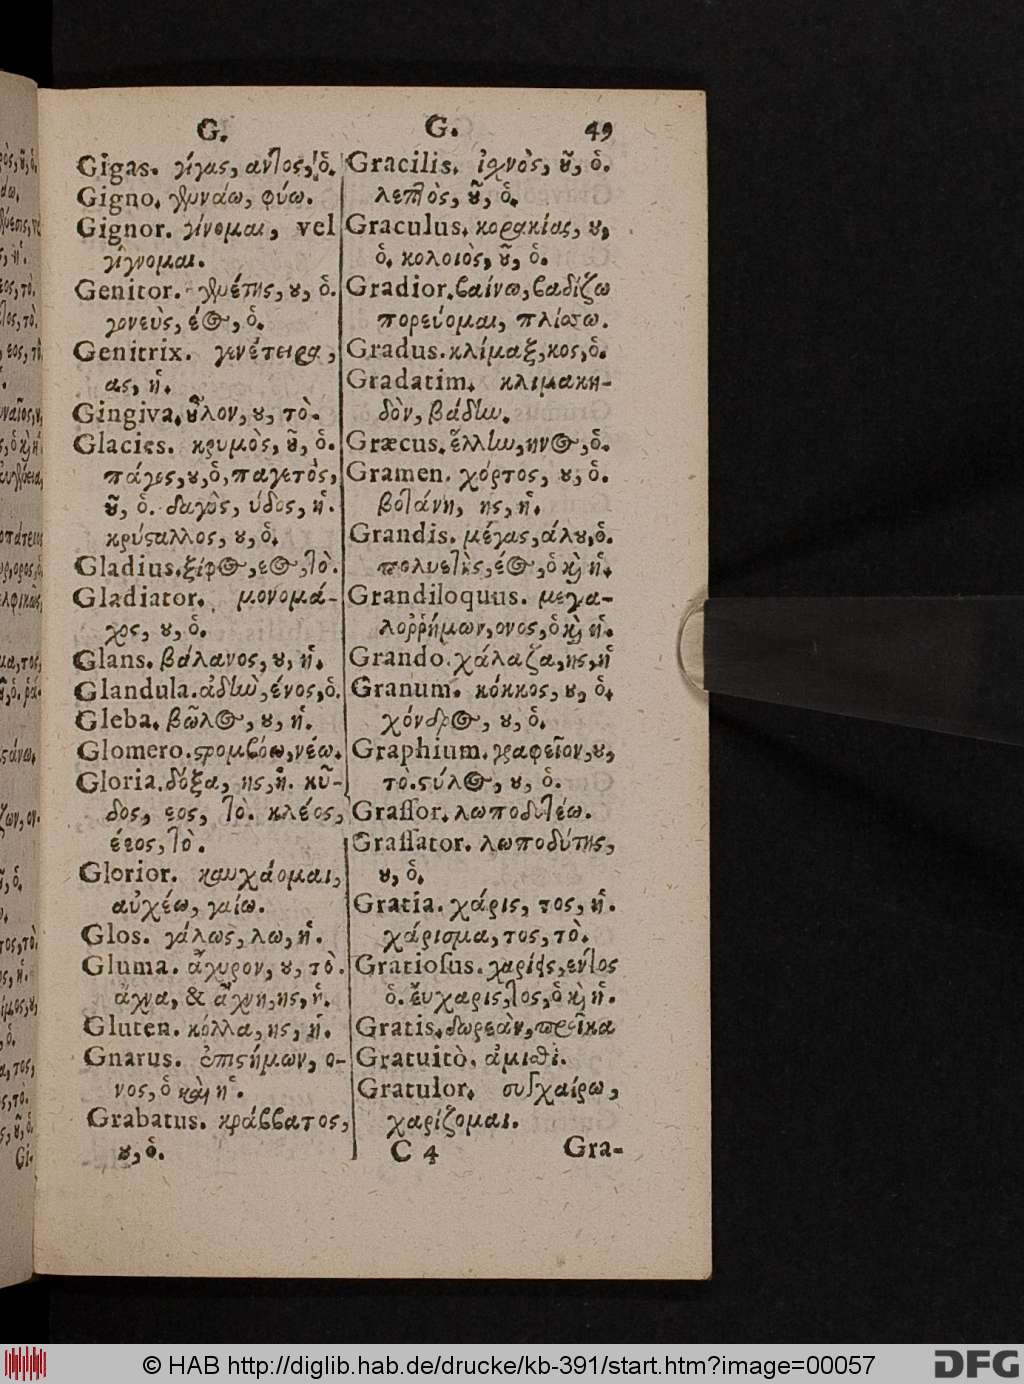 G.
Gigas. γίγας, αντος, ὁ.
Gigno. γεννάω, φύω.
Gignor. γίνομαι, vel
γίγνομαι.
Genitor. γενέτης, ου, ὁ.
γονεὺς, έος, ὁ.
Genitrix. γενέτειρα,
ας, ἡ.
Gingiva. οὖλον, ου, τὸ.
Glacies. κρυμὸς, οῦ, ὁ.
πάγος, ου, ὁ, παγετὸς,
οῦ, ὁ. δαγὺς, ύδος, ἡ.
κρύσταλλος, ου, ὁ.
Gladius. ξίφος, εος, τὸ.
Gladiator. μονομά-
χος, ου, ὁ.
Glans. βάλανος, ου, ἡ.
Glandula. ἀδὴν, ένος, ὁ.
Gleba. βῶλος, ου, ἡ.
Glomero. στρομβόω, νέω.
Gloria. δόξα, ης, ἡ. κῦ-
δος, εος, τὸ. κλέος,
έεος, τὸ.
Glorior. καυχάομαι,
αὐχέω, γαίω.
Glos. γάλως, λω, ἡ.
Gluma. ἄχυρον, ου, τὸ.
ἄχνα, & ἄχνη, ης, ἡ.
Gluten. κόλλα, ης, ἡ.
Gnarus. ἐπιστήμων, ο-
νος, ὁ καὶ ἡ.
Grabatus. κράββατος,
ου, ὁ.
G. 49
Gracilis. ἰσχνὸς, οῦ, ὁ.
λεπτὸς, οῦ, ὁ.
Graculus. κορακίας, ου,
ὁ. κολοιὸς, οῦ, ὁ.
Gradior. βαίνω, βαδίζω
πορεύομαι, πλίσσω.
Gradus. κλίμαξ, κος, ὁ.
Gradatim. κλιμακη-
δὸν, βάδην.
Græcus. ἕλλην, ηνος, ὁ.
Gramen. χόρτος, ου, ὁ.
βοτάνη, ης, ἡ.
Grandis. μέγας, άλου, ὁ.
πολυετὴς, έος, ὁ καὶ ἡ.
Grandiloquus. μεγα-
λοῤῥήμων, ονος, ὁ καὶ ἡ.
Grando. χάλαζα, ης, ἡ
Granum. κόκκος, ου, ὁ.
χόνδρος, ου, ὁ.
Graphium. γραφεῖον, ου,
τὸ. στύλος, ου, ὁ.
Graſſor. λωποδυτέω.
Graſſator. λωποδύτης,
ου, ὁ.
Gratia. χάρις, τος, ἡ.
χάρισμα, τος, τὸ.
Gratioſus. χαρίεις, εντος
ὁ. εὔχαρις, τος, ὁ καὶ ἡ.
Gratis. δωρεὰν, προῖκα
Gratuitò. ἀμισθί.
Gratulor. συγχαίρω,
χαρίζομαι.
C 4 Gra-
© HAB http://diglib.hab.de/drucke/kb-391/start.htm?image=00057
DFG